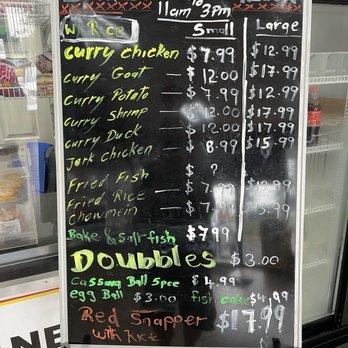 11am to 3pm
W. Rice Small Large
Curry Chicken $7.99 $12.99
Curry Goat — $12.00 $17.99
Curry Potato — $7.99 $12.99
Curry Shrimp — $12.00 $17.99
Curry Duck — $12.00 $17.99
Jerk Chicken — $8.99 $15.99
Fried Fish $ ?
Fried Rice — $7.99
Chowmein — $7.99 $15.99
Bake & Salt-fish $7.99
Doubbles $3.00
Cassava Ball 5pce $4.99
egg Ball $3.00 fish cake $4.99
Red Snapper $17.99
with Rice
NE